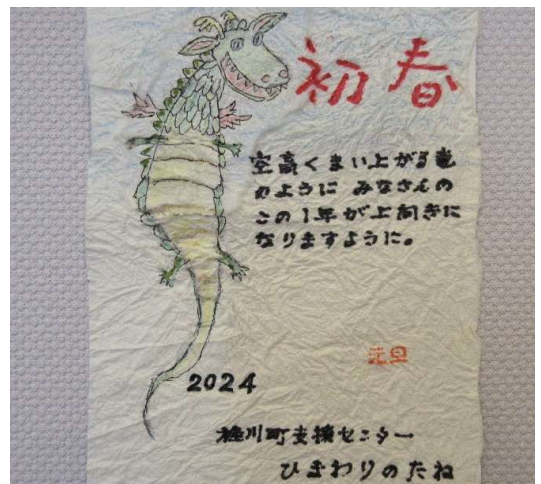 初春
空高くまい上がる竜
のように みなさんの
この1年が上向きに
なりますように。
元旦
2024
桂川町支援センター
ひまわりのたね